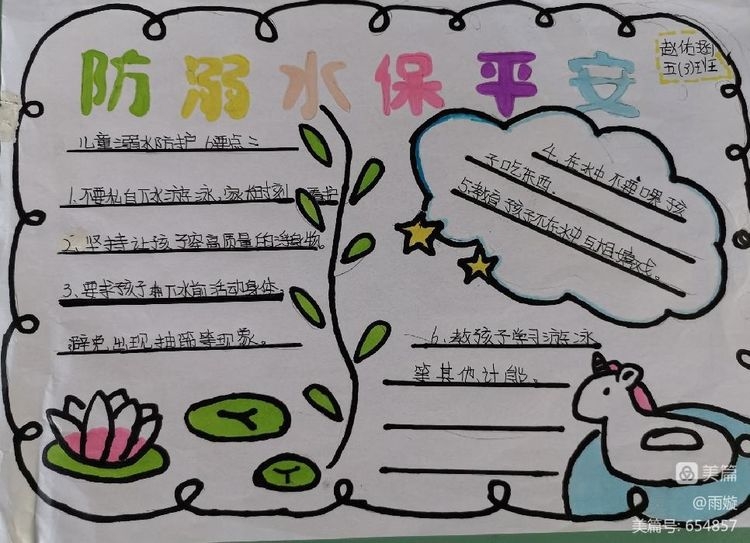 防溺水保平安
赵佑
五(3)班
儿童溺水防护6要点:
1.不要私自下水游泳,家人时刻看护
2、坚持让孩子穿高质量的浮身物。
3、要求孩子在下水前活动身体。
避免出现抽筋等现象。
4、在水中不要喂孩
子吃东西。
5.教育孩子不在水中互相嬉戏。
6、教孩子学习游泳
等其他计能。
美篇
@雨璇
美篇号: 654857